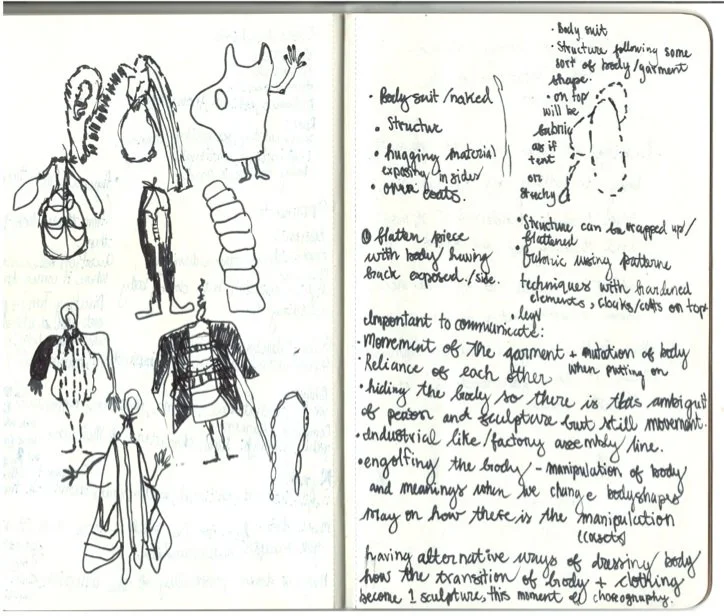 • Body suit
• Structure following some
sort of body/garment
shape.
• on top
will be
fabric
as if
tent
or
stuchy
• Body suit/naked
• Structure
• hugging material
exposing insides
• over coats.
① flatten piece
with body having
back exposed./side.
• Structure can be wrapped up/
flattened
• fabric using patterne
techniques with hardened
elements, cloaks/coats on top
• leg
Important to communicate:
• Movement of the garment + mutation of body
when putting on
• Reliance of each other
• hiding the body so there is this ambiguit
of person and sculpture but still movement.
• industrial like/factory assembly line.
• engolfing the body - manipulation of body
and meanings when we change bodyshapes
may on how there is the manipulation
(corsets)
having alternative ways of dressing body
how the transition of body + clothing
become 1 sculpture, this moment of choreography.